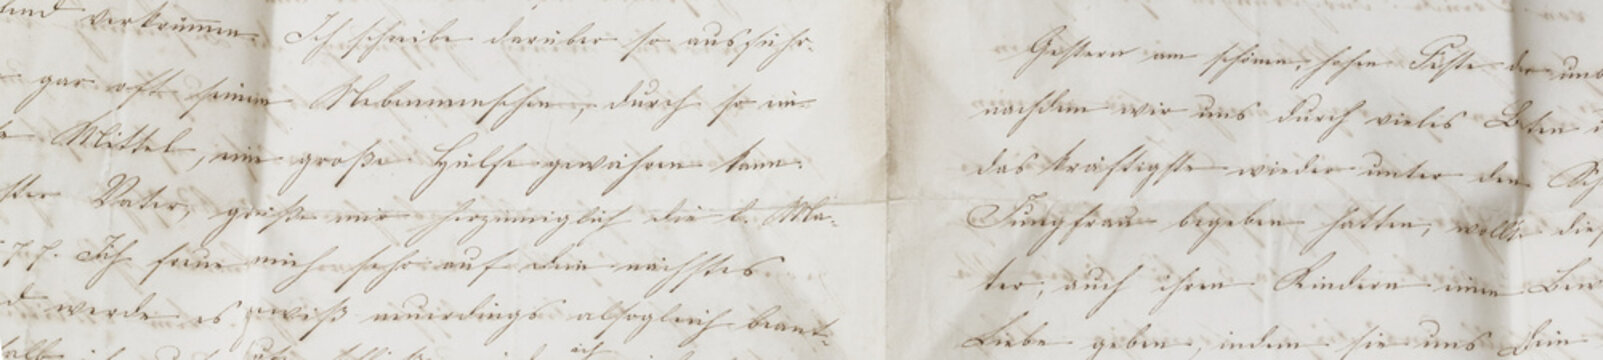 verkümmern. Ich schreibe darüber so ausführ-
gar oft seinen Nebenmenschen, durch so ein-
Mittel, eine große Hülfe gewähren kann.
Vater, grüße mir herzinniglich die l. Ma-
Ich freue mich sehr auf Dein nächstes
werde es gewiß neuerdings alsogleich beant-
Gestern am schönen, hohen Feste der unb
nachdem wir uns durch vieles Beten
das kräftigste wieder unter den Sch
Jungfrau begeben hatten, wollte die
ter, auch ihren Kindern einen Bew
Liebe geben, indem sie uns Dein